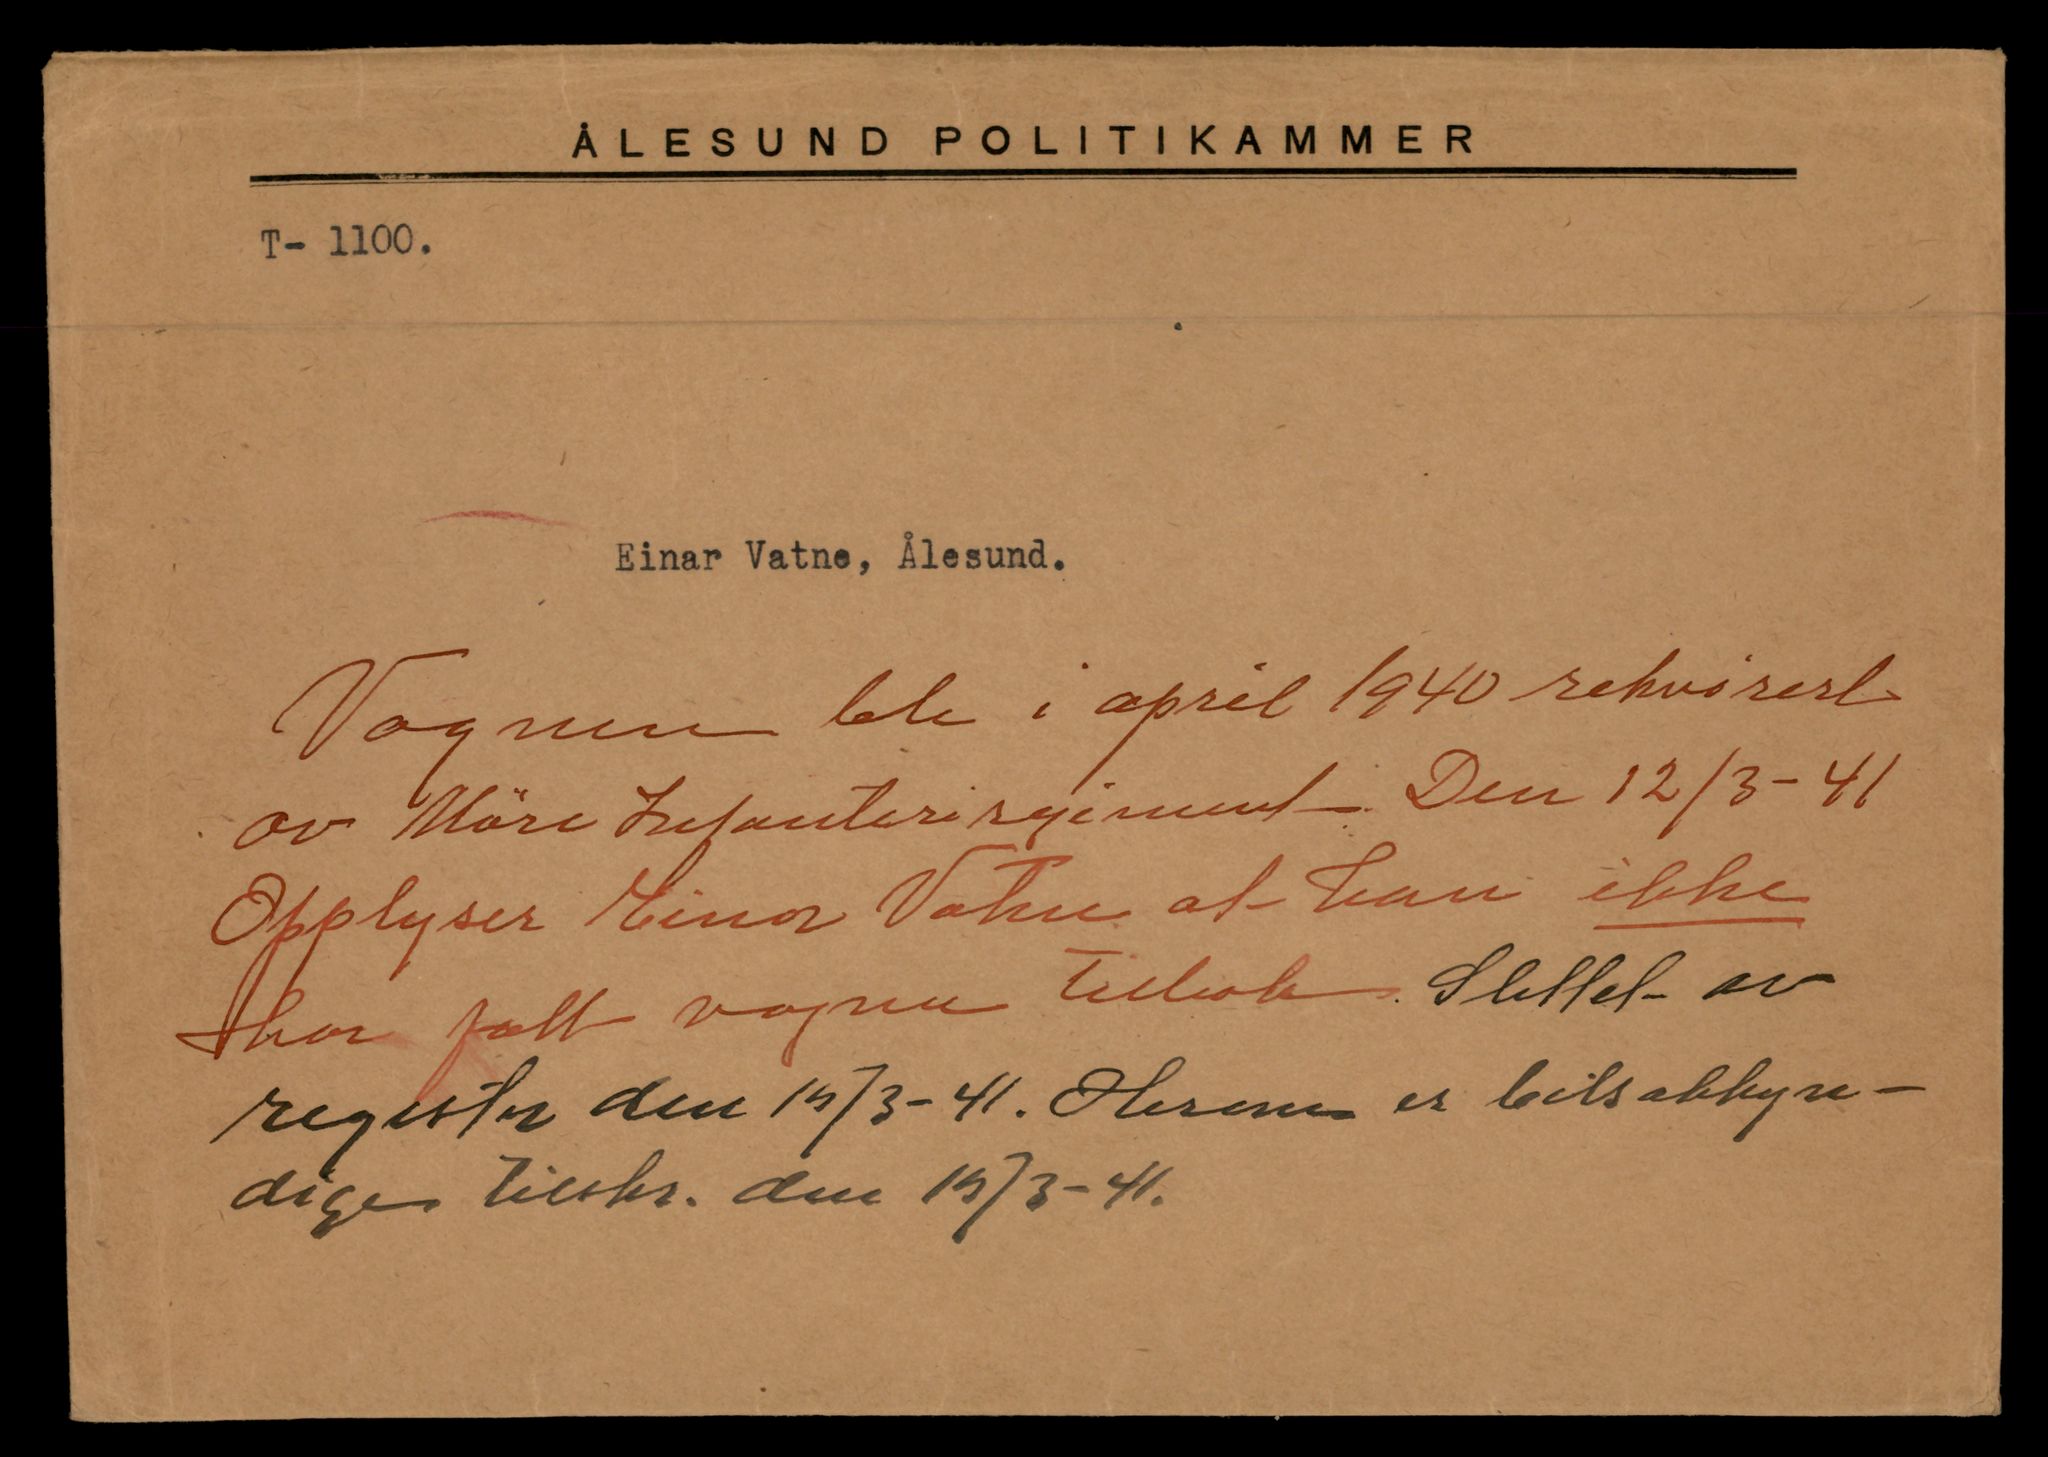 ÅLESUND POLITIKAMMER
T- 1100.
Einar Vatne, Ålesund.
Vognen ble i april 1940 rekvirert
av Möre Infanteriregiment. Den 12/3-41
Opplyser Einar Vatne at han ikke
har fått vognen tilbake. Slettet av
register den 15/3-41. Herom er bilsakkyn-
dige tilskr. den 15/3-41.